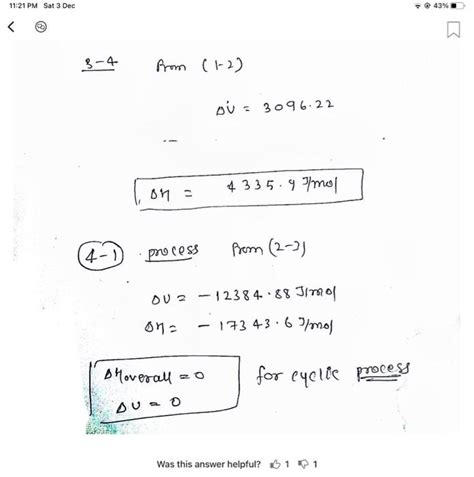 11:21 PM Sat 3 Dec 43%
3-4 From (1-2)
ΔU = 3096.22
ΔH = 4335.9 J/mol
4-1 process From (2-3)
ΔU = -12384.88 J/mol
ΔH = -17343.6 J/mol
ΔHoverall = 0 for cyclic process
ΔU = 0
Was this answer helpful? 1 1